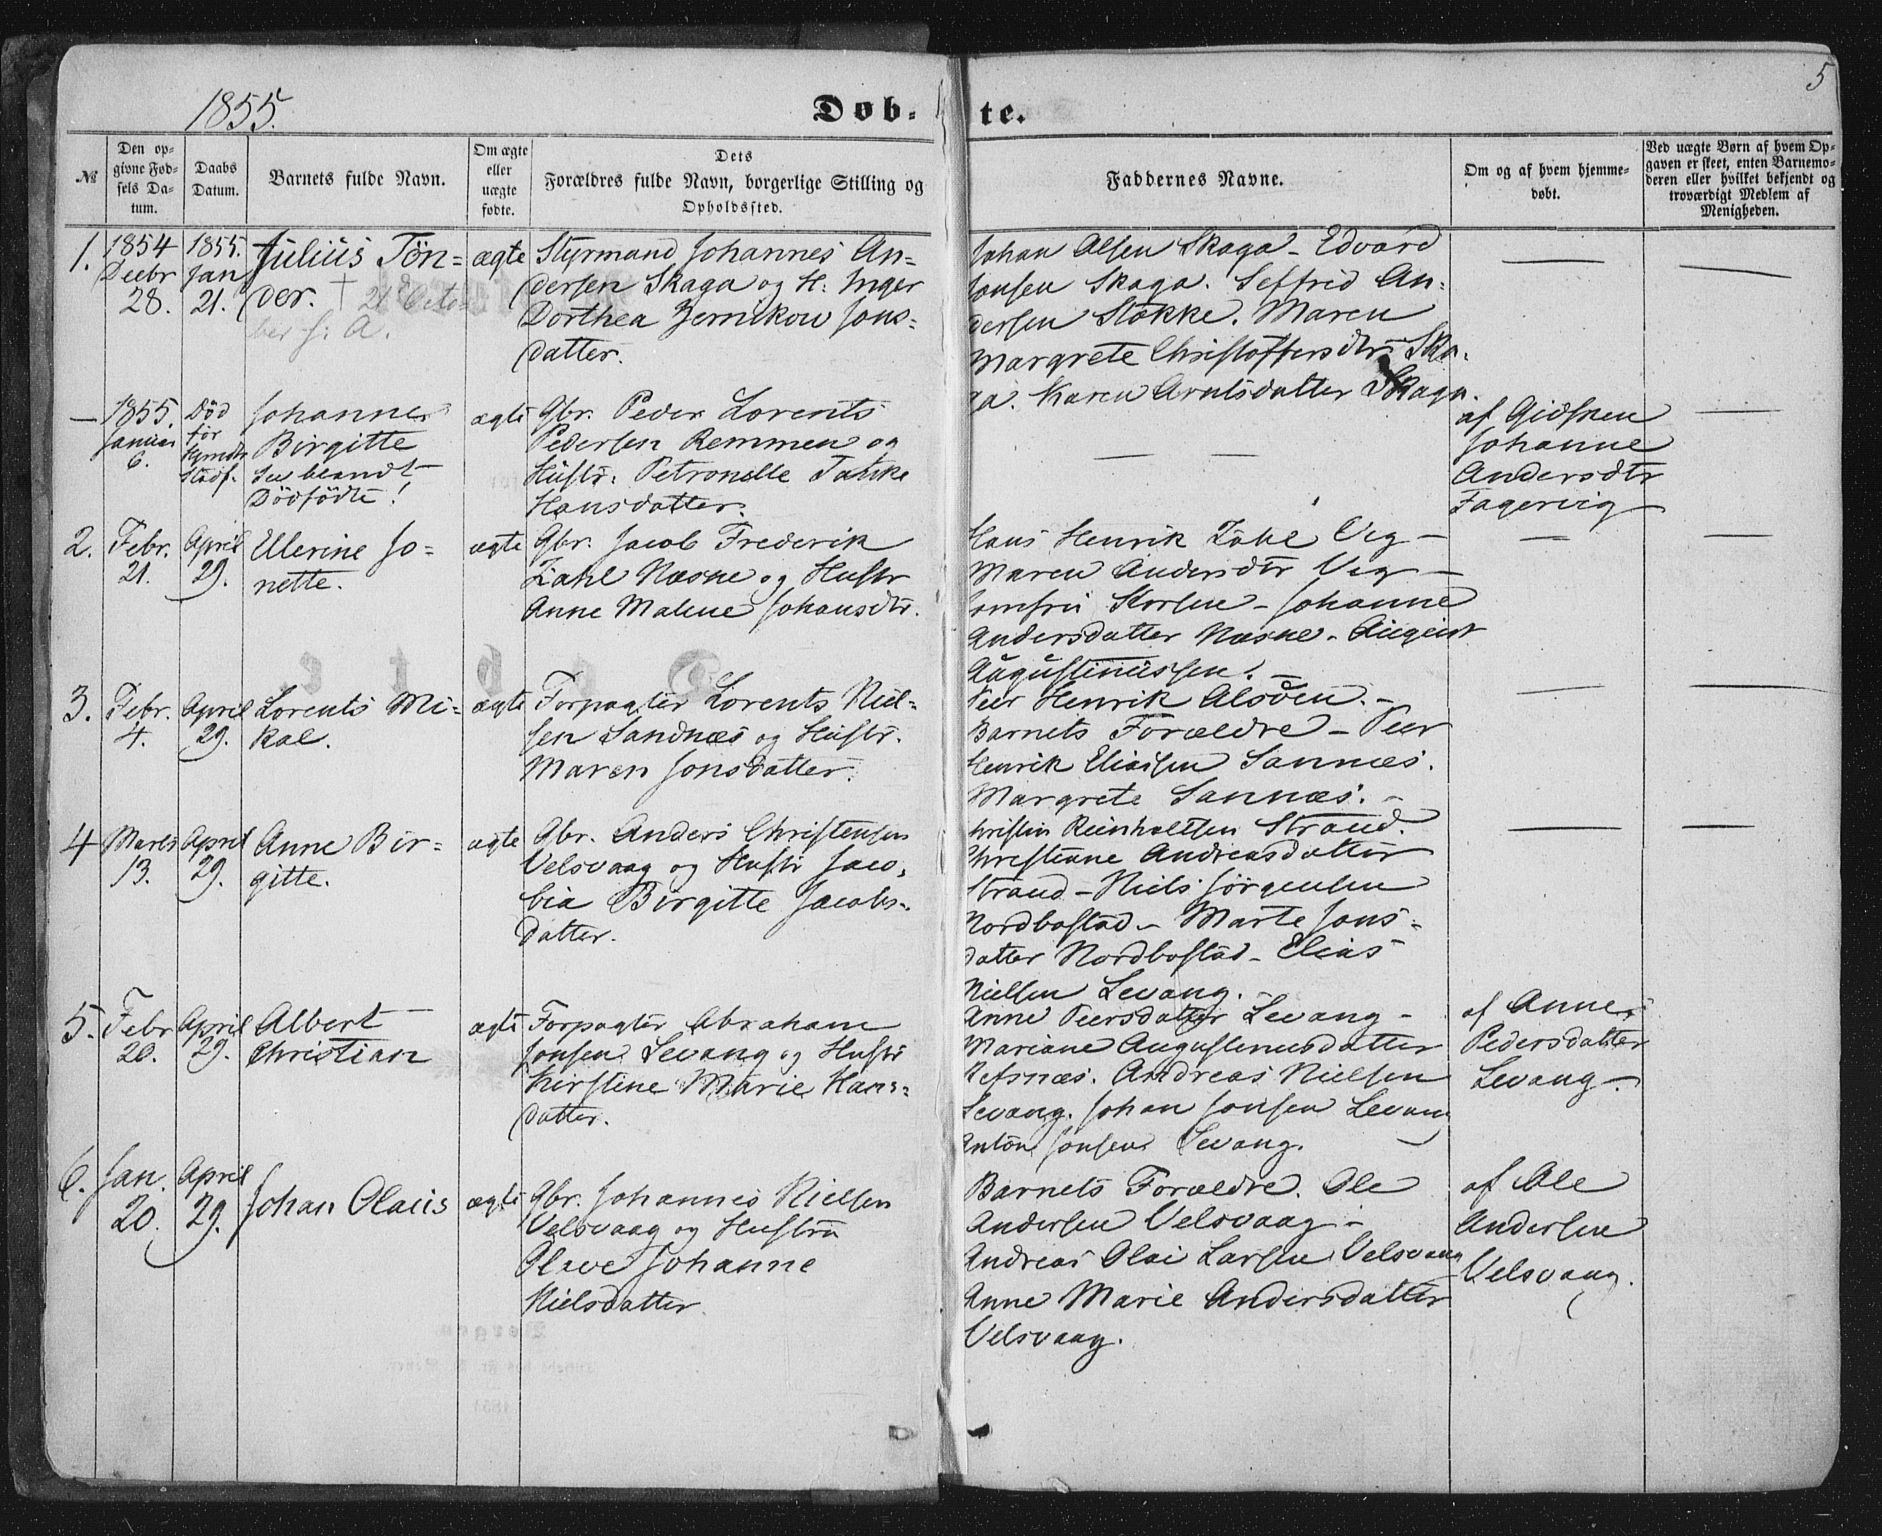 1855.
Døb-
te.
5
№
Den op-
givne Fød-
sels Da-
tum.
Daabs
Datum.
Barnets fulde Navn.
Om ægte
eller
uægte
fødte.
Dets
Forældres fulde Navn, borgerlige Stilling og
Opholdssted.
Faddernes Navne.
Om og af hvem hjemme-
døbt.
Ved uægte Børn af hvem Op-
gaven er skeet, enten Barnemo-
deren eller hvilket bekjendt og
troværdigt Medlem af
Menigheden.
1.
1854
Decbr
28.
1855.
Jan
21.
Julius Tøn-
der. † 21 Octo-
ber s: A.
ægte
Styrmand Johannes An-
dersen Skaga og H. Inger
Dorthea Zernikow Jons-
datter.
Johan Olsen Skaga - Edvard
Jonsen Skaga. Seffrid An-
dersen Stokke. Maren
Margrete Christoffersdtr Ska-
ga. Karen Arntsdatter Skaga.
-
1855.
Januar
6.
Død
før
Stadf.
Johanne
Birgitte
See blandt
Dødfødte!
ægte
Gbr. Peder Lorents
Pedersen Remmen og
Hustr. Petronelle Tanke
Hansdatter.
af Gidsken
Johanne
Andersdtr
Fagervig
2.
Febr.
21.
April
29.
Ellerine Jo-
nette.
ægte
Gbr. Jacob Frederik
Zahl Næsne og Hustr
Anne Malene Johansdtr.
Hans Henrik Zahl Veg -
Maren Andersdtr Veg -
Jomfru Korsen - Johanne
Andersdatter Næsne - August
Augustinussen. -
3.
Febr.
4.
April
29.
Lorents Mi-
kal.
ægte
Forpagter Lorents Niel-
sen Sandnæs og Hustr.
Maren Jonsdatter.
Peer Henrik Alsøen. -
Barnets Forældre - Peer
Henrik Eliassen Sannæs.
Margrete Sannæs. -
4
Marts
13.
April
29.
Anne Bir-
gitte.
ægte
Gbr. Anders Christensen
Velsvaag og Hustr Jaco-
bia Birgitte Jacobs-
datter.
Christen Reinholtsen Strand.
Christianne Andreasdatter
Strand - Niels Jørgensen
Nordbostad - Marte Jons-
datter Nordbostad - Elias
Nielsen Levang.
5.
Febr
20.
April
29.
Albert
Christian
ægte
Forpagter Abraham
Jonsen Levang og Hustr
Kirstine Marie Hans-
datter.
Anne Peersdatter Levang -
Mariane Augustinusdatter
Refsnæs. Andreas Nielsen
Levang. Johan Jonsen Levang
Anton Jonsen Levang.
af Anne
Pedersdatter
Levang -
6.
Jan.
20.
April
29.
Johan Olaus
ægte
Gbr. Johannes Nielsen
Velsvaag og Hustru
Olave Johanne
Nielsdatter.
Barnets Forældre. Ole
Andersen Velsvaag -
Andreas Olai Larsen Velsvaag
Anne Marie Andersdatter
Velsvaag.
af Ole
Andersen
Velsvaag.